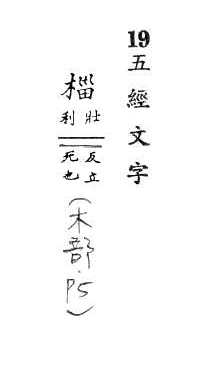 19五經文字
椔
壯利
反立死也
(木部.P5)